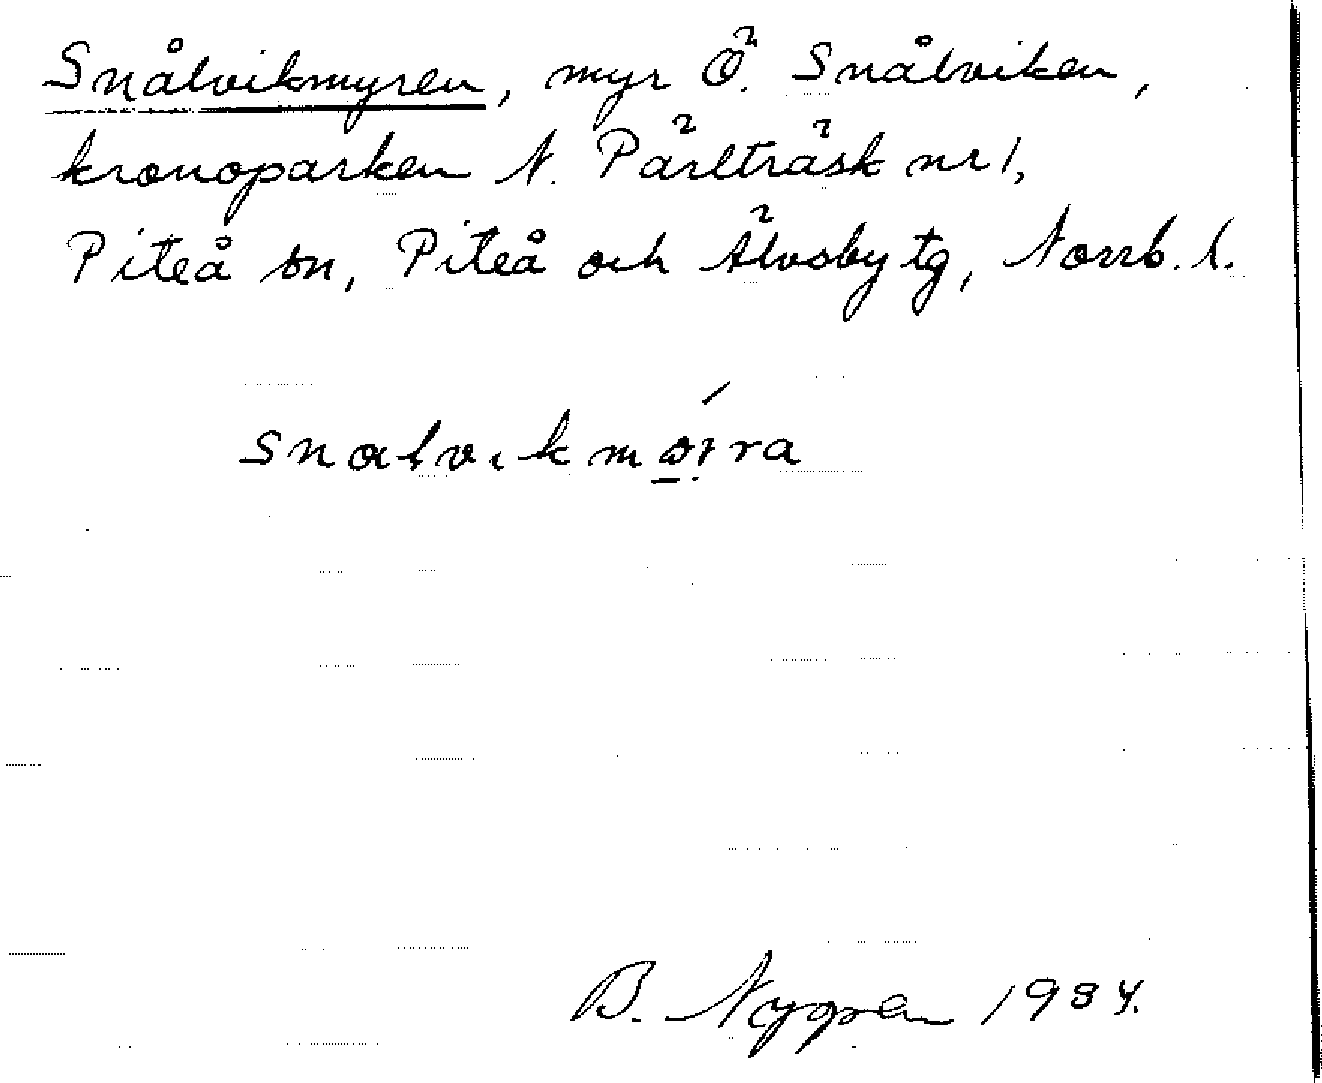 Snålvikmyren, myr Ö. Snålviken,
kronoparken N. Pärlträsk nr 1,
Piteå sn, Piteå och Älvsby tg, Norrb. l.
B. Nygren 1934.